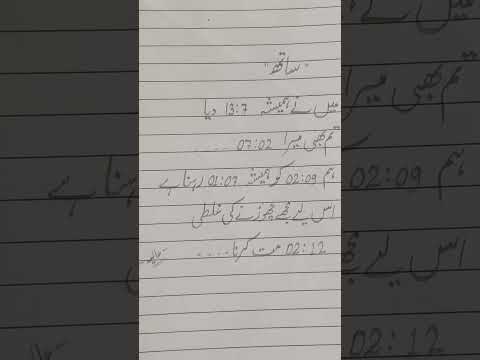 "ساتھ"
میں نے ہمیشہ 13:7 دیا
تم بھی میرا 07:02 ....
ہم 02:09 کو ہمیشہ 01:07 رہنا ہے
اس لیے مجھے چھوڑنے کی غلطی
02:12 مت کرنا ....